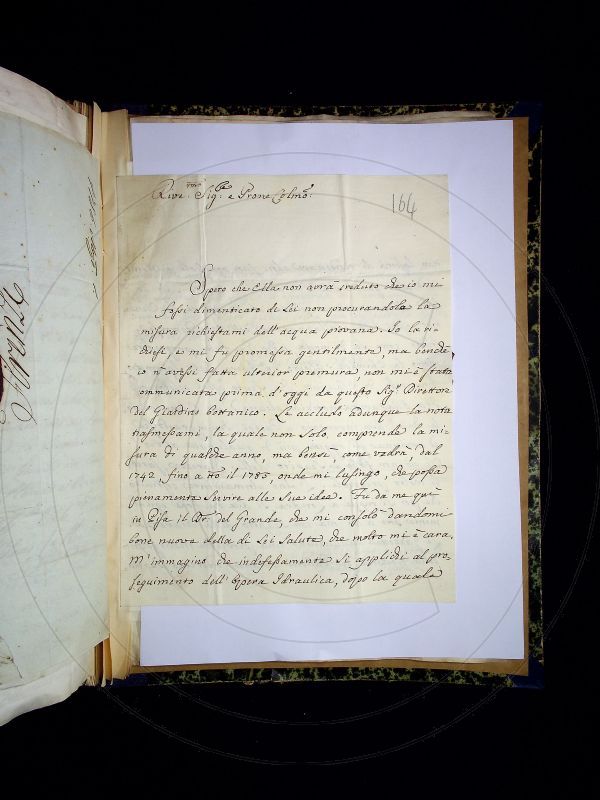 Rive.mo Sig.re e Prone Colmo.
164
Spero che Ella non avrà creduto che io mi
fossi dimenticato di Lei non procurandole la
misura richiestami dell'acqua piovana. Io la ri-
chiesi, e mi fu promessa gentilmente, ma benchè
io n'avessi fatta ulterior premura, non mi è stata
communicata prima d'oggi da questo Sig.r Direttore
del Giardino bottanico. Le accludo adunque la nota
trasmessami, la quale non solo comprende la mi-
sura di qualche anno, ma bensì, come vedrà, dal
1742 fino a tto il 1783, onde mi lusingo, che possa
pienamente servire alle sue idee. Fu da me quì
in Pisa il Dr. del Grande, che mi consolò dandomi
bone nuove della di Lei salute, che molto mi è cara.
M'immagino che indefessamente si applichi al pro-
seguimento dell'Opera Idraulica, dopo la quale
Firenze